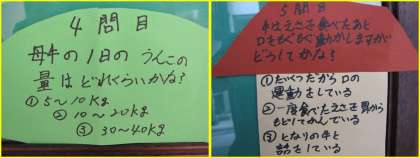 4問目
母牛の1日のうんこの
量はどれくらいかな?
①5~10Kg
②10~20Kg
③30~40Kg
5問目
牛はえさを食べたあと
口をもぐもぐ動かしますが
どうしてかな?
①たいくつだから口の
運動をしている
②一度食べたえさを胃から
もどしてかんでいる
③となりの牛と
話をしている